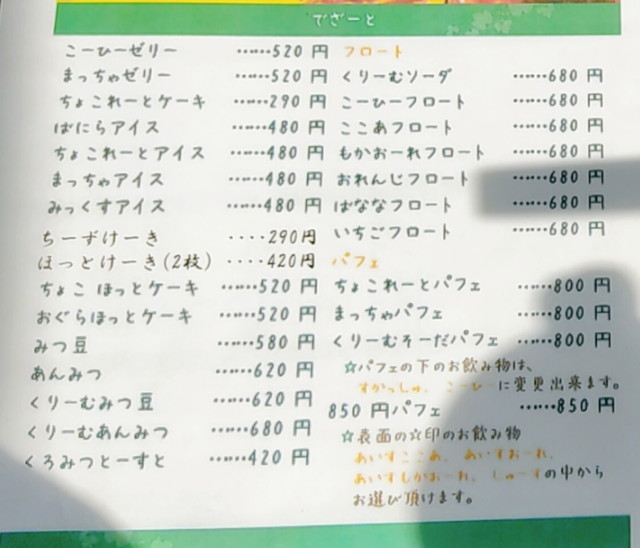 でざーと
こーひーゼリー ……520 円
まっちゃゼリー ……520 円
ちょこれーとケーキ ……290 円
ばにらアイス ……480 円
ちょこれーとアイス ……480 円
まっちゃアイス ……480 円
みっくすアイス ……480 円
ちーずけーき ····290円
ほっとけーき(2枚) ····420円
ちょこ ほっとケーキ ……520 円
おぐらほっとケーキ ……520 円
みつ豆 ……580 円
あんみつ ……620 円
くりーむみつ豆 ……620 円
くりーむあんみつ ……680 円
くろみつとーすと ……420 円
フロート
くりーむソーダ ……680 円
こーひーフロート ……680 円
ここあフロート ……680 円
もかおーれフロート ……680 円
おれんじフロート ……680 円
ばななフロート ……680 円
いちごフロート ……680 円
パフェ
ちょこれーとパフェ ……800 円
まっちゃパフェ ……800 円
くりーむそーだパフェ ……800 円
☆パフェの下のお飲み物は、
すかっしゅ、こーひーに変更出来ます。
850 円パフェ ……850 円
☆表面の☆印のお飲み物
あいすここあ、あいすおーれ、
あいすもかおーれ、しゅーすの中から
お選び頂けます。